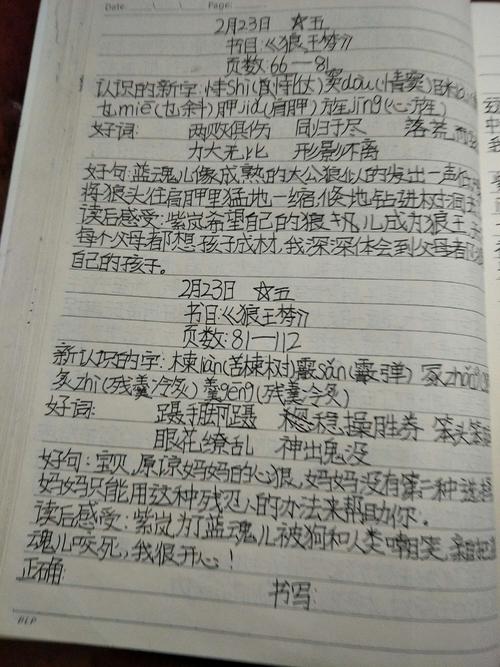 Date. Page:
2月23日 ☆五
书目:《狼王梦》
页数:66—81
认识的新字:恃shì(自恃伙大)窦dòu(情窦)
乜miē(乜斜)胛jiǎ(肩胛)旌jīng(心旌)
好词: 两败俱伤 同归于尽 落荒而
力大无比 形影不离
好句:蓝魂儿像成熟的大公狼似的发出一声低
将狼头往肩胛里猛地一缩,倏地钻进树洞
读后感受:紫岚希望自己的狼 儿成为狼王,
每个父母都想孩子成材,我深深体会到父母都
自己的孩子。
2月23日 ☆五
书目:《狼王梦》
页数:81—112
新认识的字:楝liàn(苦楝树)霰sǎn(霰弹)冢zhǒng
炙zhì(残羹冷炙)羹gēng(残羹冷炙)
好词: 蹑手蹑脚 稳操胜券 笨头笨
眼花缭乱 神出鬼没
好句:宝贝,原谅妈妈的心狠,妈妈没有第二种选择
妈妈只能用这种残忍的办法来帮助你。
读后感受:紫岚为了蓝魂儿被狗和人类嘲笑,亲自把
魂儿咬死,我很开心!
正确:
书写: